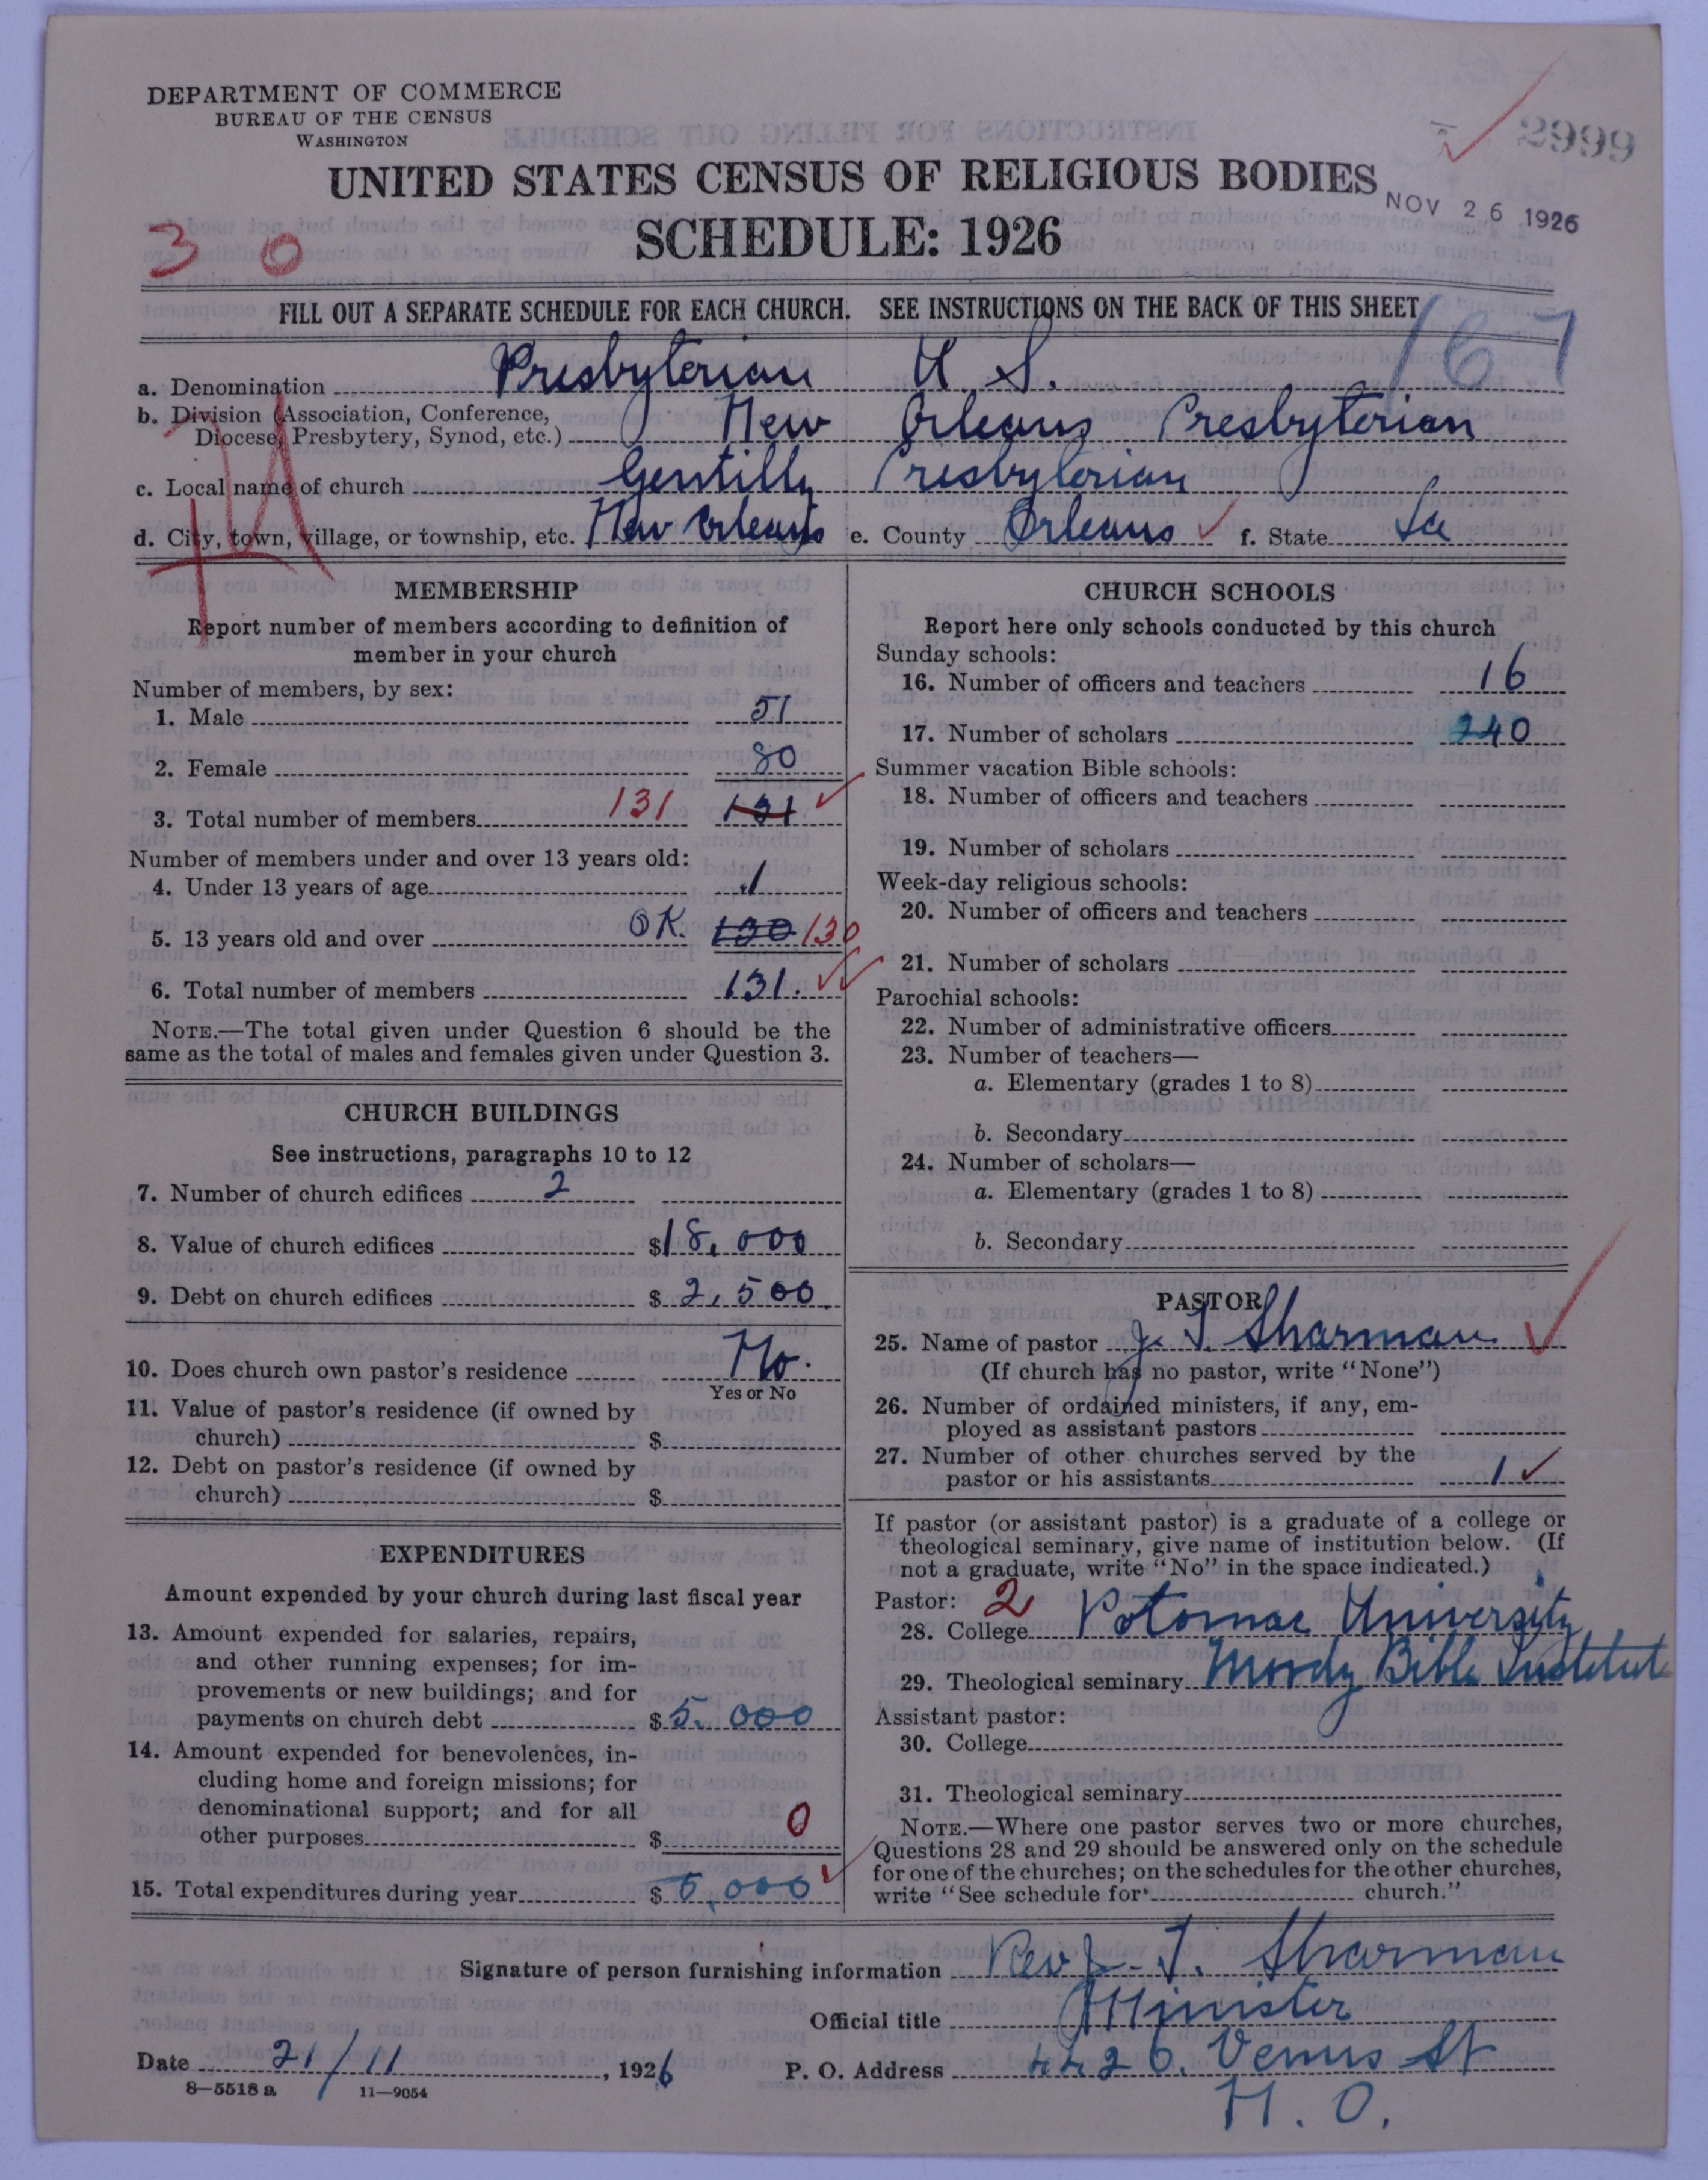 DEPARTMENT OF COMMERCE
BUREAU OF THE CENSUS
WASHINGTON
2999
UNITED STATES CENSUS OF RELIGIOUS BODIES
NOV 26 1926
SCHEDULE: 1926
3 0
FILL OUT A SEPARATE SCHEDULE FOR EACH CHURCH. SEE INSTRUCTIONS ON THE BACK OF THIS SHEET
167
a. Denomination Presbyterian U. S.
b. Division (Association, Conference,
Diocese, Presbytery, Synod, etc.) New Orleans Presbyterian
c. Local name of church Gentilly Presbyterian
d. City, town, village, or township, etc. New Orleans e. County Orleans f. State La
MEMBERSHIP
Report number of members according to definition of
member in your church
Number of members, by sex:
1. Male 51
2. Female 80
3. Total number of members 131 131
Number of members under and over 13 years old:
4. Under 13 years of age 1
5. 13 years old and over OK. 130 130
6. Total number of members 131.
NOTE.—The total given under Question 6 should be the
same as the total of males and females given under Question 3.
CHURCH BUILDINGS
See instructions, paragraphs 10 to 12
7. Number of church edifices 2
8. Value of church edifices $18,000
9. Debt on church edifices $2,500.
10. Does church own pastor's residence No.
Yes or No
11. Value of pastor's residence (if owned by
church) $
12. Debt on pastor's residence (if owned by
church) $
EXPENDITURES
Amount expended by your church during last fiscal year
13. Amount expended for salaries, repairs,
and other running expenses; for im-
provements or new buildings; and for
payments on church debt $5,000
14. Amount expended for benevolences, in-
cluding home and foreign missions; for
denominational support; and for all
other purposes $ 0
15. Total expenditures during year $5,000
CHURCH SCHOOLS
Report here only schools conducted by this church
Sunday schools:
16. Number of officers and teachers 16
17. Number of scholars 240
Summer vacation Bible schools:
18. Number of officers and teachers
19. Number of scholars
Week-day religious schools:
20. Number of officers and teachers
21. Number of scholars
Parochial schools:
22. Number of administrative officers
23. Number of teachers—
a. Elementary (grades 1 to 8)
b. Secondary
24. Number of scholars—
a. Elementary (grades 1 to 8)
b. Secondary
PASTOR
25. Name of pastor J. T. Sharman
(If church has no pastor, write "None")
26. Number of ordained ministers, if any, em-
ployed as assistant pastors
27. Number of other churches served by the
pastor or his assistants 1
If pastor (or assistant pastor) is a graduate of a college or
theological seminary, give name of institution below. (If
not a graduate, write "No" in the space indicated.)
Pastor: 2
28. College Potomac University
29. Theological seminary Moody Bible Institute
Assistant pastor:
30. College
31. Theological seminary
NOTE.—Where one pastor serves two or more churches,
Questions 28 and 29 should be answered only on the schedule
for one of the churches; on the schedules for the other churches,
write "See schedule for church."
Signature of person furnishing information Rev J. T. Sharman
Official title Minister
Date 21/11, 1926 P. O. Address 4426. Venus St
N. O.
8—5518 a 11—9054